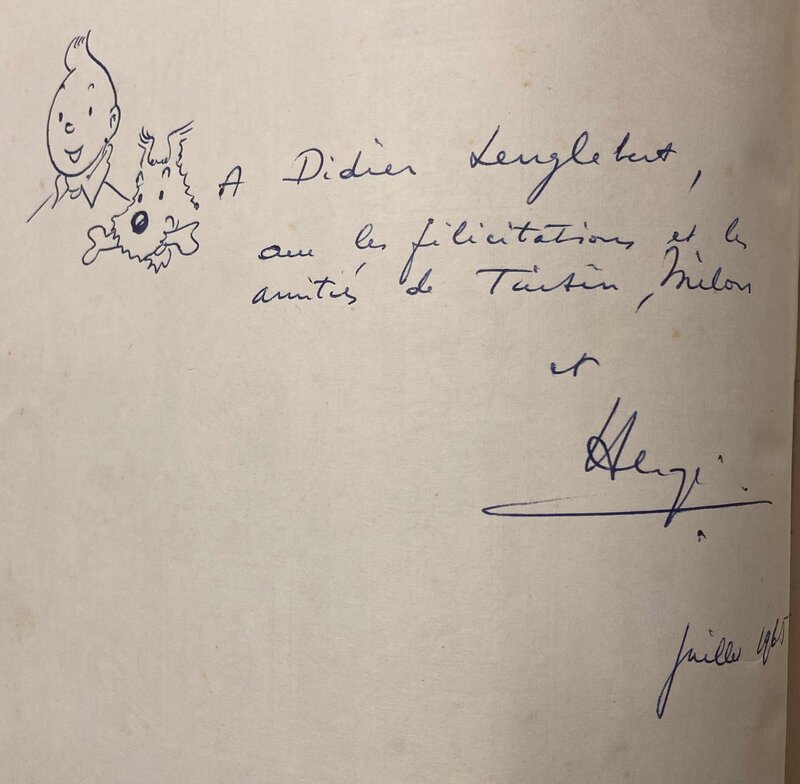 A Didier Lenglebert,
avec les félicitations et les
amitiés de Tintin, Milou
et
Hergé.
Juillet 1965